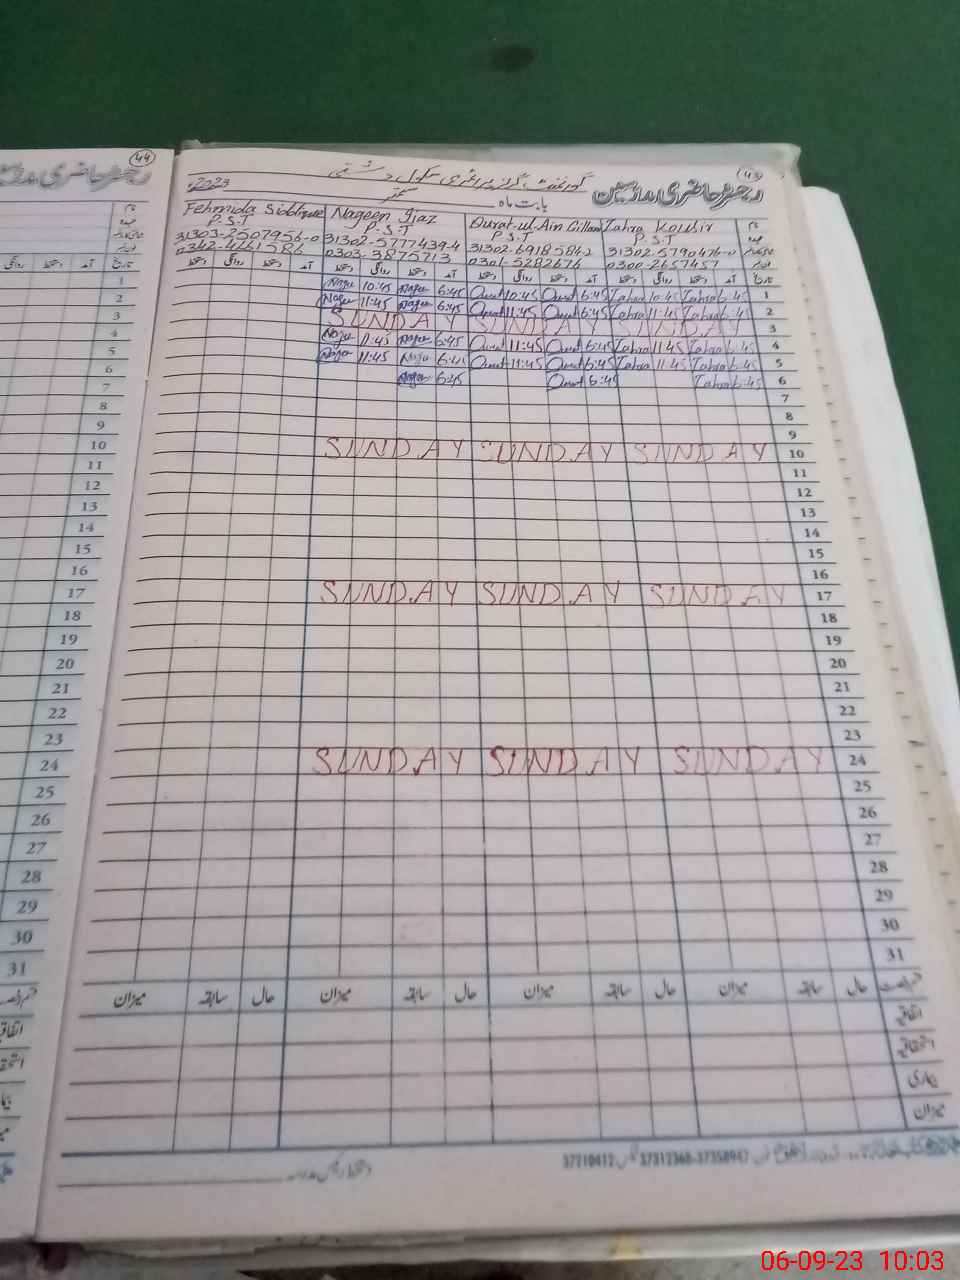 44
43
رجسٹر حاضری مدرسین
گورنمنٹ گرلز پرائمری سکول
بابت ماہ ستمبر 2023
نام Zahra Kousir Qurat-ul-Ain Gillani Nageen Ijaz Fehmida Siddique
عہدہ P.S.T P.S.T P.S.T P.S.T
31302-5790476-0 31302-6918584-2 31302-5777439-4 31303-2507956-0
0300-2657457 0301-5282676 0303-3875713 0342-4161586
تاریخ آمد دستخط روانگی دستخط آمد دستخط روانگی دستخط آمد دستخط روانگی دستخط آمد دستخط روانگی دستخط
1 6:45 Zahra 10:45 Zahra 6:45 Qurat 10:45 Qurat 6:45 Nageen 10:45 Nageen
2 6:45 Zahra 11:45 Zahra 6:45 Qurat 11:45 Qurat 6:45 Nageen 11:45 Nageen
3 SUNDAY SUNDAY SUNDAY
4 6:45 Zahra 11:45 Zahra 6:45 Qurat 11:45 Qurat 6:45 Nageen 11:45 Nageen
5 6:45 Zahra 11:45 Zahra 6:45 Qurat 11:45 Qurat 6:45 Nageen 11:45 Nageen
6 6:45 Zahra 6:45 Qurat 6:45 Nageen
7
8
9
10 SUNDAY SUNDAY SUNDAY
11
12
13
14
15
16
17 SUNDAY SUNDAY SUNDAY
18
19
20
21
22
23
24 SUNDAY SUNDAY SUNDAY
25
26
27
28
29
30
31
حال سابقہ میزان حال سابقہ میزان حال سابقہ میزان حال سابقہ میزان
اتفاقیہ
استحقاقیہ
بیماری
میزان
37210412 37312368-37358947
06-09-23 10:03